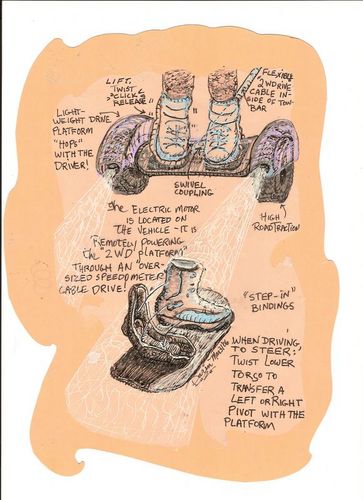 LIFT,
TWIST
"CLICK"
RELEASE
FLEXIBLE
2WDRIVE
CABLE IN-
SIDE OF TOW-
BAR
LIGHT-
WEIGHT DRIVE
PLATFORM
"HOPS"
WITH THE
DRIVER!
SWIVEL
COUPLING
HIGH
ROADTRACTION
THE ELECTRIC MOTOR
IS LOCATED ON
THE VEHICLE - IT IS
REMOTELY POWERING
THE "2WD PLATFORM"
THROUGH AN "OVER-
SIZED SPEEDOMETER
CABLE DRIVE!
"STEP-IN"
BINDINGS
WHEN DRIVING,
TO STEER:
TWIST LOWER
TORSO TO
TRANSFER A
LEFT OR RIGHT
PIVOT WITH THE
PLATFORM